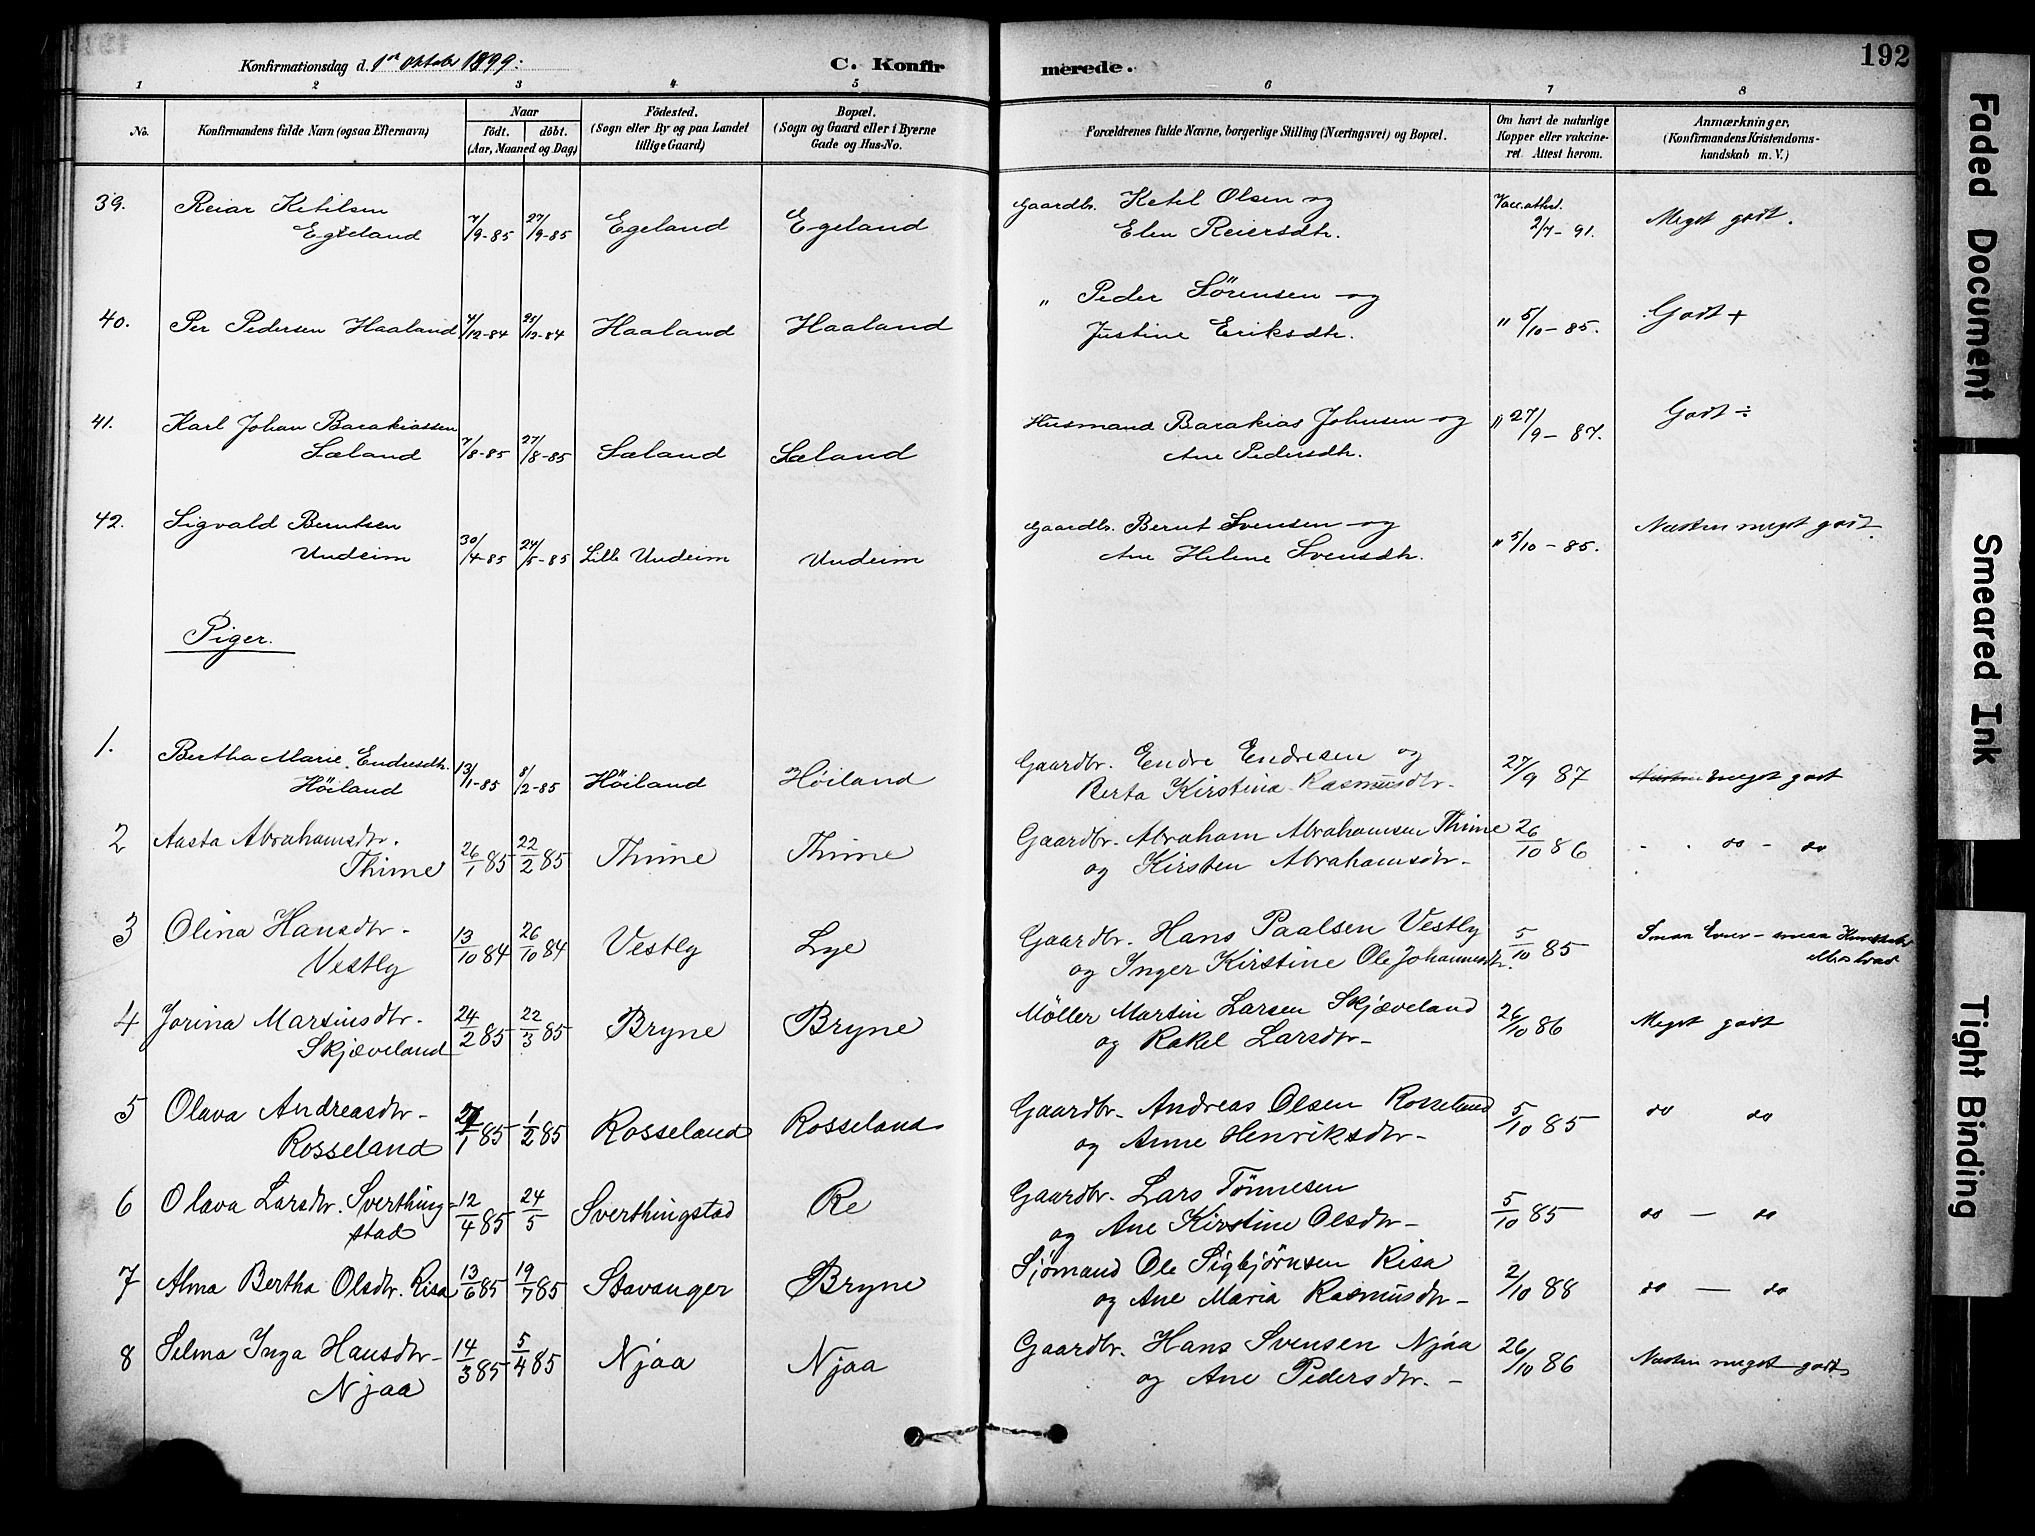 Konfirmationsdag d. 1ste Oktober 1899. C. Konfirmerede. 192
1 2 3 4 5 6 7 8
No. Konfirmandens fulde Navn (ogsaa Efternavn) Naar født. døbt. (Aar, Maaned og Dag) Fødested. (Sogn eller By og paa Landet tillige Gaard) Bopæl. (Sogn og Gaard eller i Byerne Gade og Hus-No. Forældrenes fulde Navne, borgerlige Stilling (Næringsvei) og Bopæl. Om havt de naturlige Kopper eller vakcineret. Attest herom. Anmærkninger, (Konfirmandens Kristendomskundskab m. V.)
39. Reiar Ketilsen Gaardbr. Ketel Olsen og Vacc. athd.
Egeland 7/9-85 27/9-85 Egeland Egeland Elen Reiersdtr. 2/7-91. Meget godt.
" Peder Sörensen og
40. Per Pedersen Haaland 7/12-84 25/12-84 Haaland Haaland Justine Eriksdtr. " 5/10-85. Godt +
41. Karl Johan Barakiassen Husmand Barakias Johnsen og " 27/9-87. Godt ÷
Sæland 7/8-85 27/8-85 Sæland Sæland Ane Pedersdtr.
42. Sigvald Berntsen Gaardbr. Bernt Svensen og Næsten meget godt.
Undeim 30/4-85 24/5-85 Lille Undeim Undeim Ane Helene Svensdtr. " 5/10-85.
Piger.
1. Bertha Marie Endresdtr. Gaardbr. Endre Endresen og
Höiland 13/1-85 8/2-85 Höiland Høiland Berta Kirstina Rasmusdtr. 27/9 87 Næsten meget godt
2 Aasta Abrahamsdtr. Gaardbr. Abraham Abrahamsen Thime
Thime 26/1 85 22/2 85 Thime Thime og Kirsten Abrahamsdtr. 26/10 86 do - do
3 Olina Hansdtr. Gaardbr. Hans Paalsen Vestly Smaa Evner - smaa
Vestly 13/10 84 26/10 84 Vestly Lye og Inger Kirstine Ole Johannesdtr. 5/10 85
4 Jorina Martinsdtr. Møller Martin Larsen Skjæveland
Skjæveland 24/2 85 22/3 85 Bryne Bryne og Rakel Larsdtr. 26/10 86 Meget godt
5 Olava Andreasdtr. Gaardbr. Andreas Olsen Rosseland
Rosseland /1 85 1/2 85 Rosseland Rosseland og Anne Henriksdtr. 5/10 85 do do
6 Olava Larsdtr. Sverthing- Gaardbr. Lars Tönnesen
stad 12/4 85 24/5 Sverthingstad Re og Ane Kirstine Olsdtr. 5/10 85 do - do
7 Alma Bertha Olsdtr. Risa 13/6 85 19/7 85 Stavanger Bryne Sjømand Ole Sigbjörnsen Risa
og Ane Maria Rasmusdtr. 2/10 88 do - do
8 Selma Inga Hansdtr. Gaardbr. Hans Svensen Njaa
Njaa 14/3 85 5/4 85 Njaa Njaa og Ane Pedersdtr. 26/10 86 Næsten meget godt
Faded Document
Smeared Ink
Tight Binding